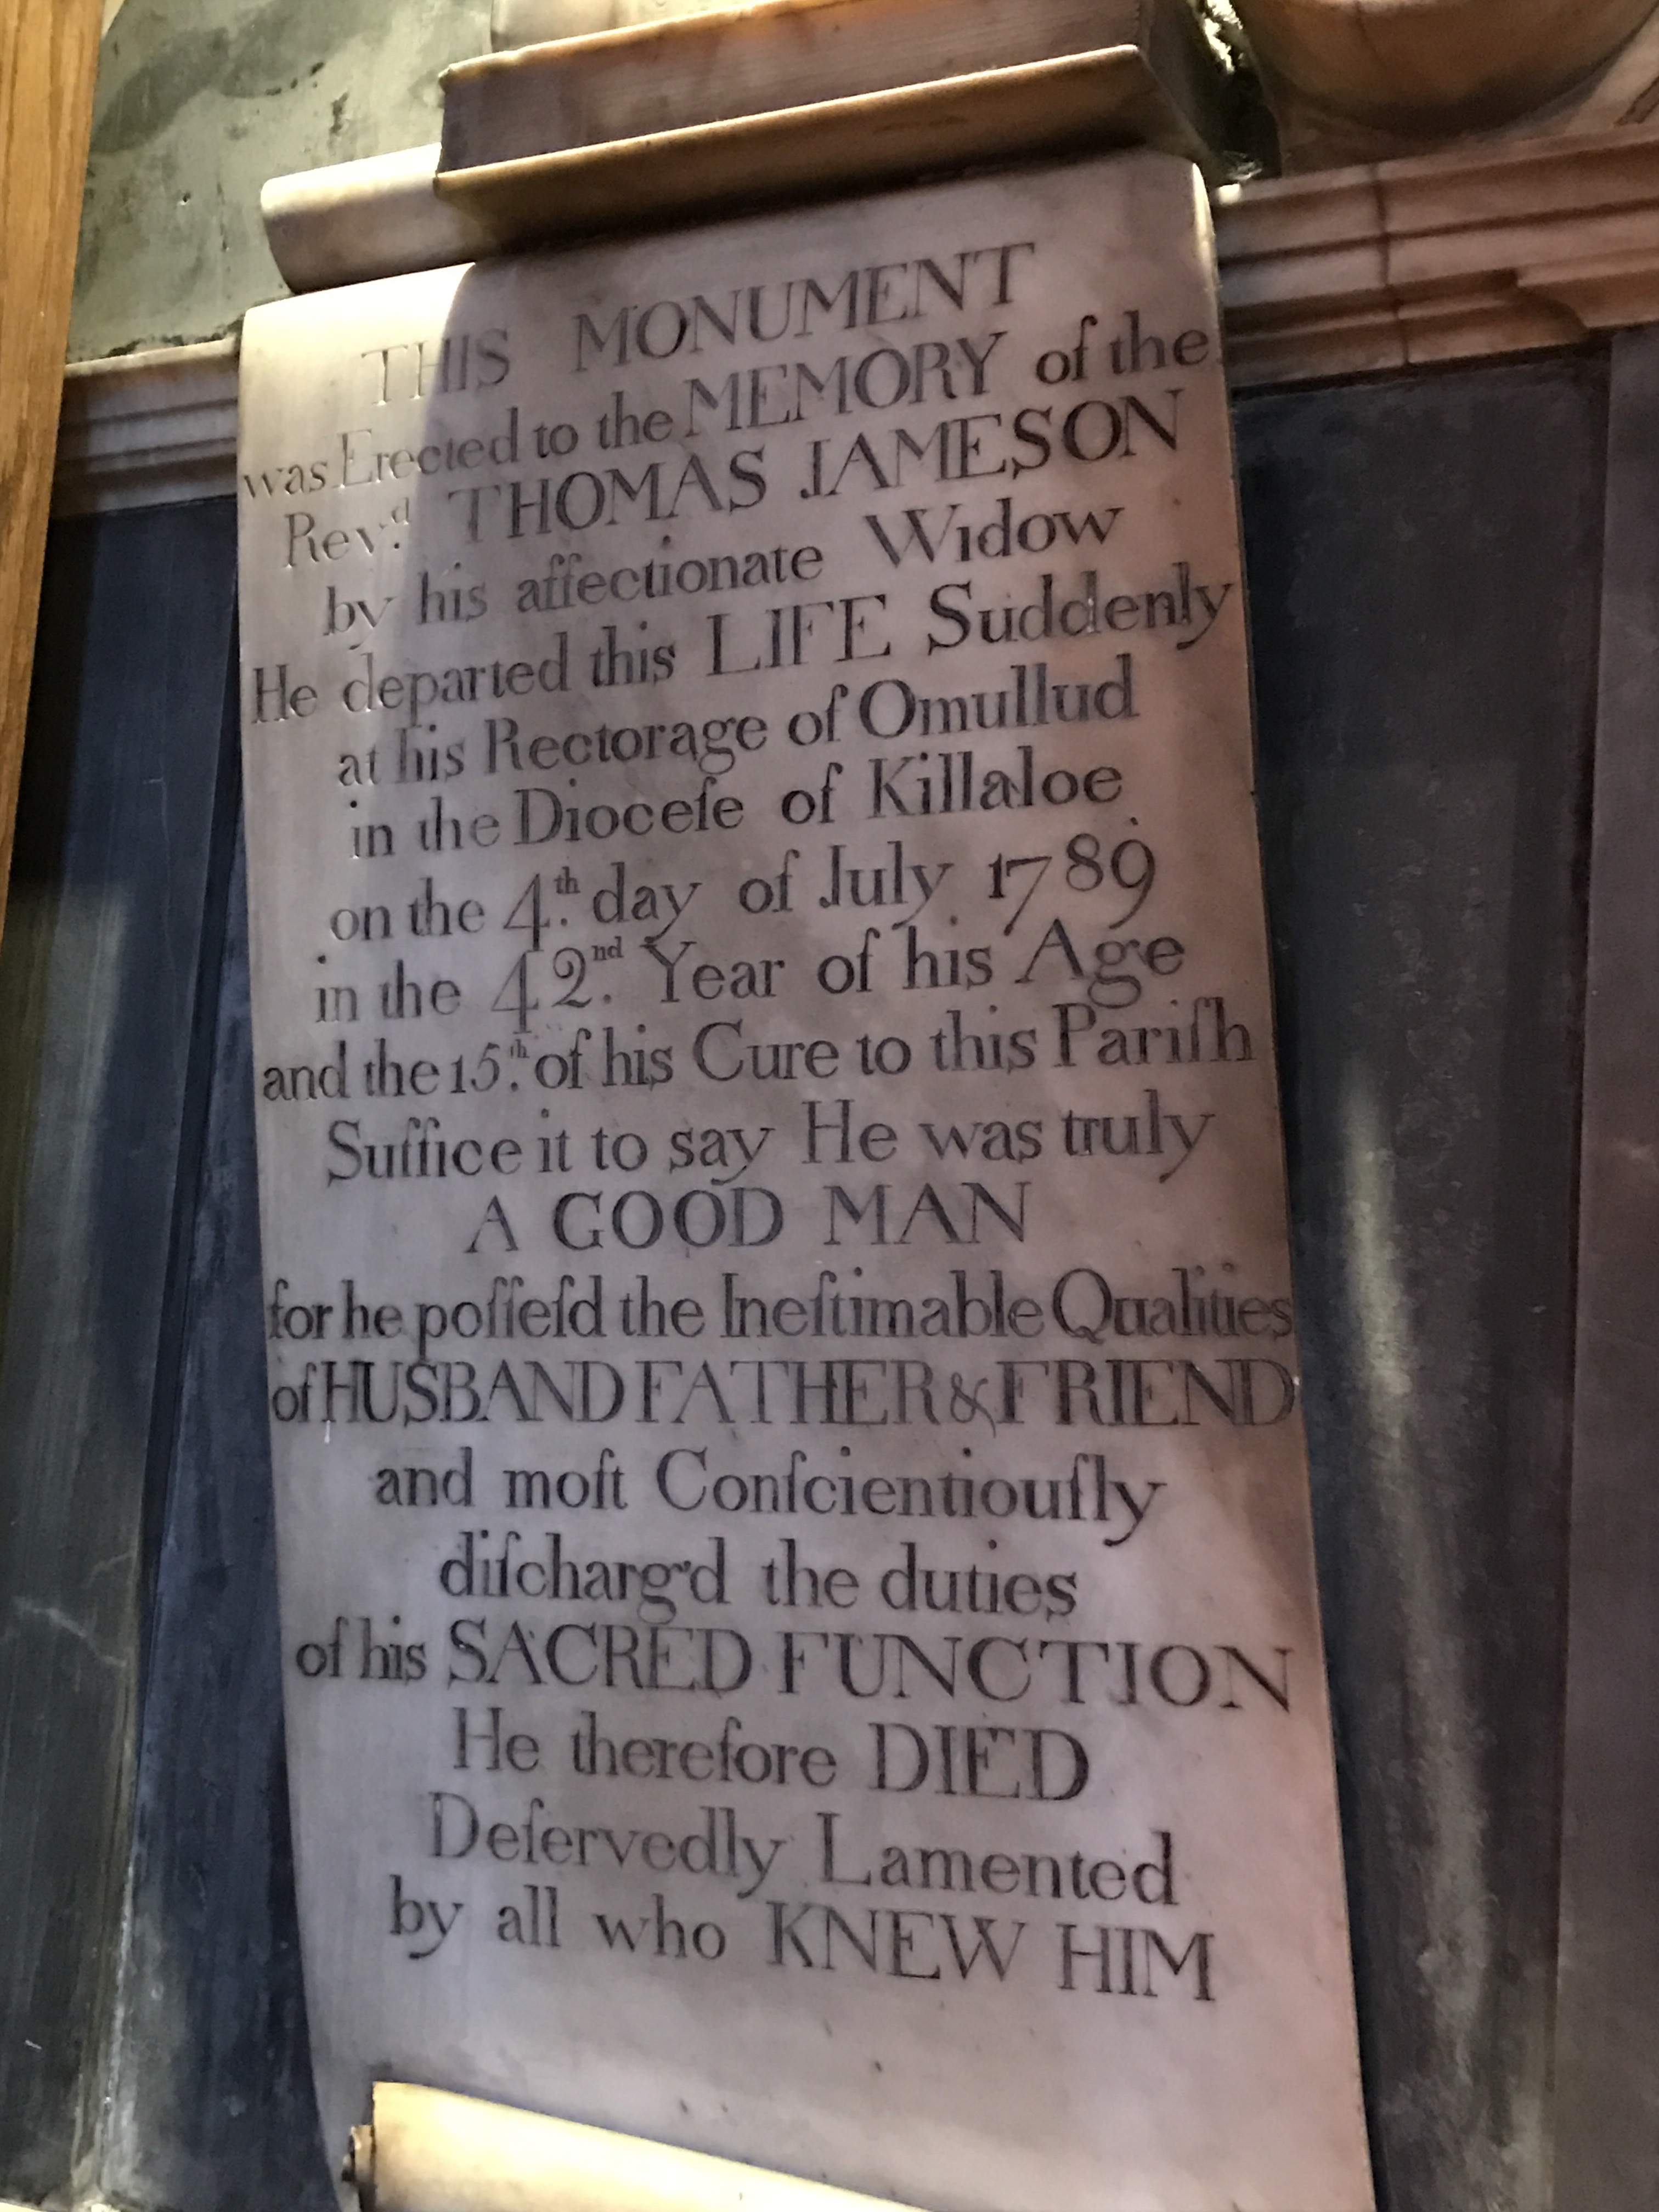 THIS MONUMENT
was Erected to the MEMORY of the
Rev.d THOMAS JAMESON
by his affectionate Widow
He departed this LIFE Suddenly
at his Rectorage of Omullud
in the Dioceſe of Killaloe
on the 4.th day of July 1789
in the 42.nd Year of his Age
and the 15.th of his Cure to this Pariſh
Suffice it to say He was truly
A GOOD MAN
for he poſſeſd the Ineſtimable Qualities
of HUSBAND FATHER & FRIEND
and moſt Conſcientiouſly
diſcharg'd the duties
of his SACRED FUNCTION
He therefore DIED
Deſervedly Lamented
by all who KNEW HIM